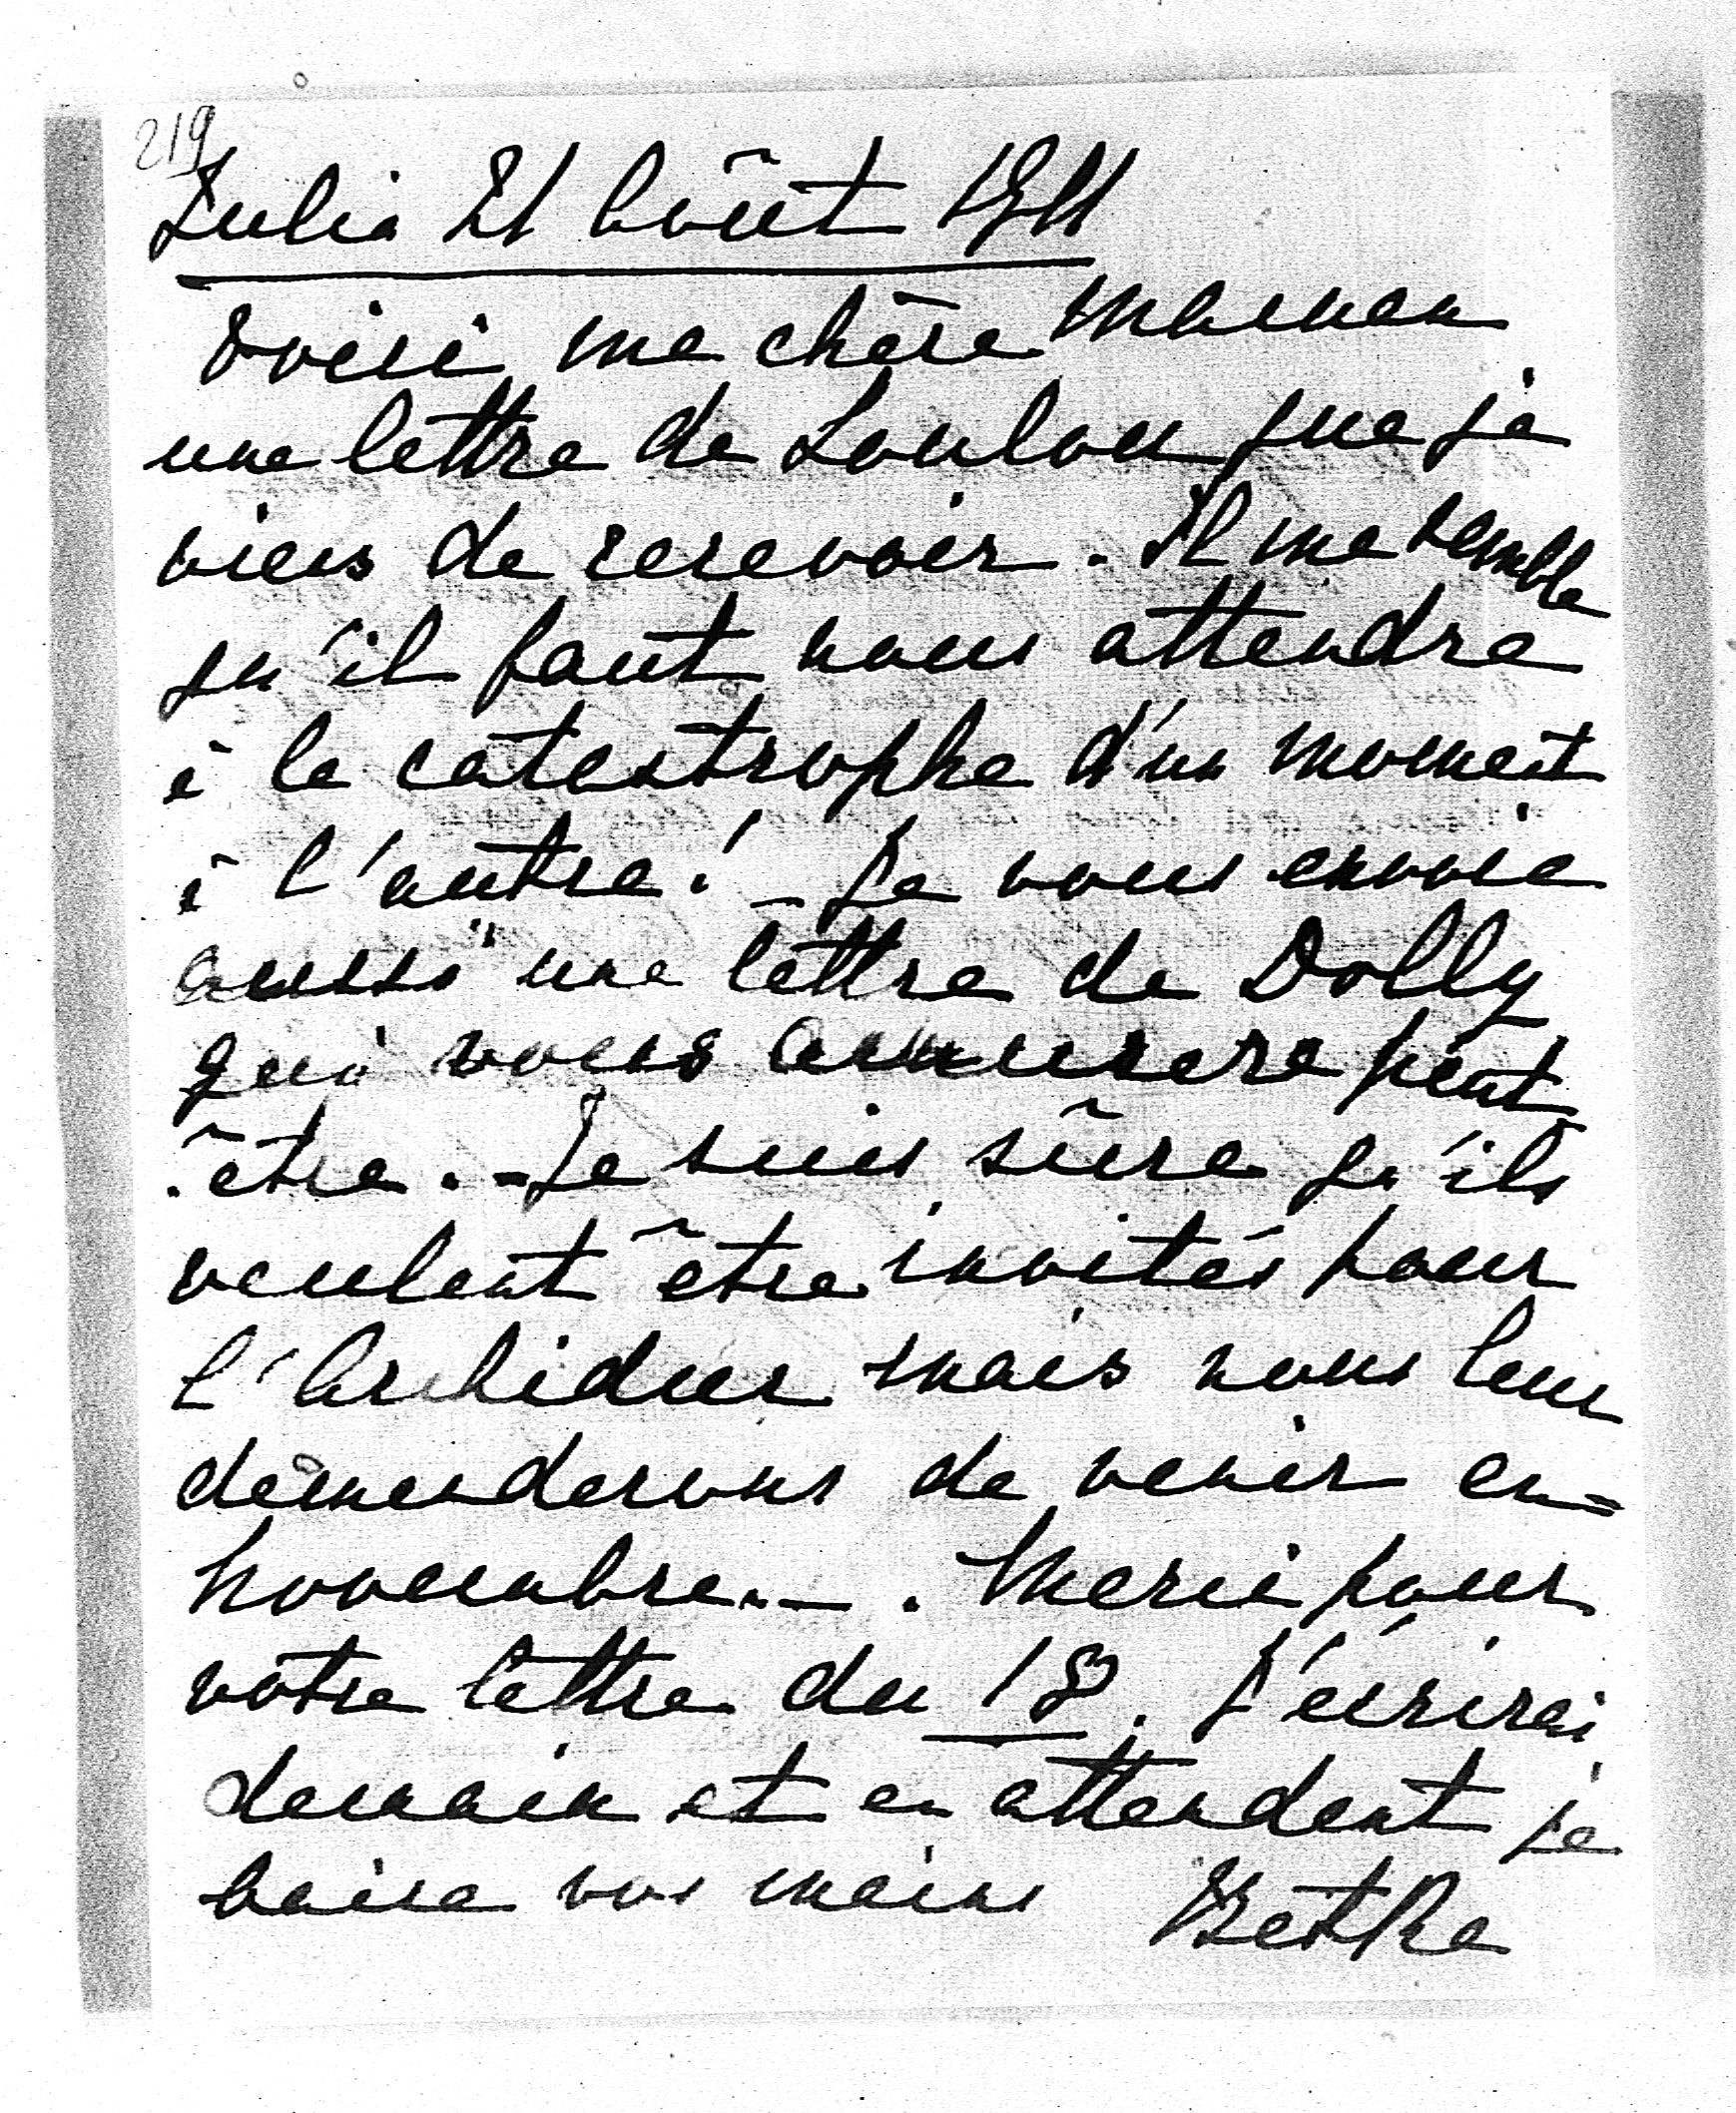 219
Julia 21 Août 1911
Voici ma chère Maman
une lettre de Loulou que je
viens de recevoir. Il me semble
qu'il faut nous attendre
à la catastrophe d'un moment
à l'autre! – Je vous envoie
aussi une lettre de Dolly
qui vous amusera peut
-être. – Je suis sûre qu'ils
veulent être invités pour
l'Archiduc mais nous leur
demanderons de venir en=
Novembre. – . Merci pour
votre lettre du 18. J'écrirai
demain et en attendant je
baise vos mains Betka